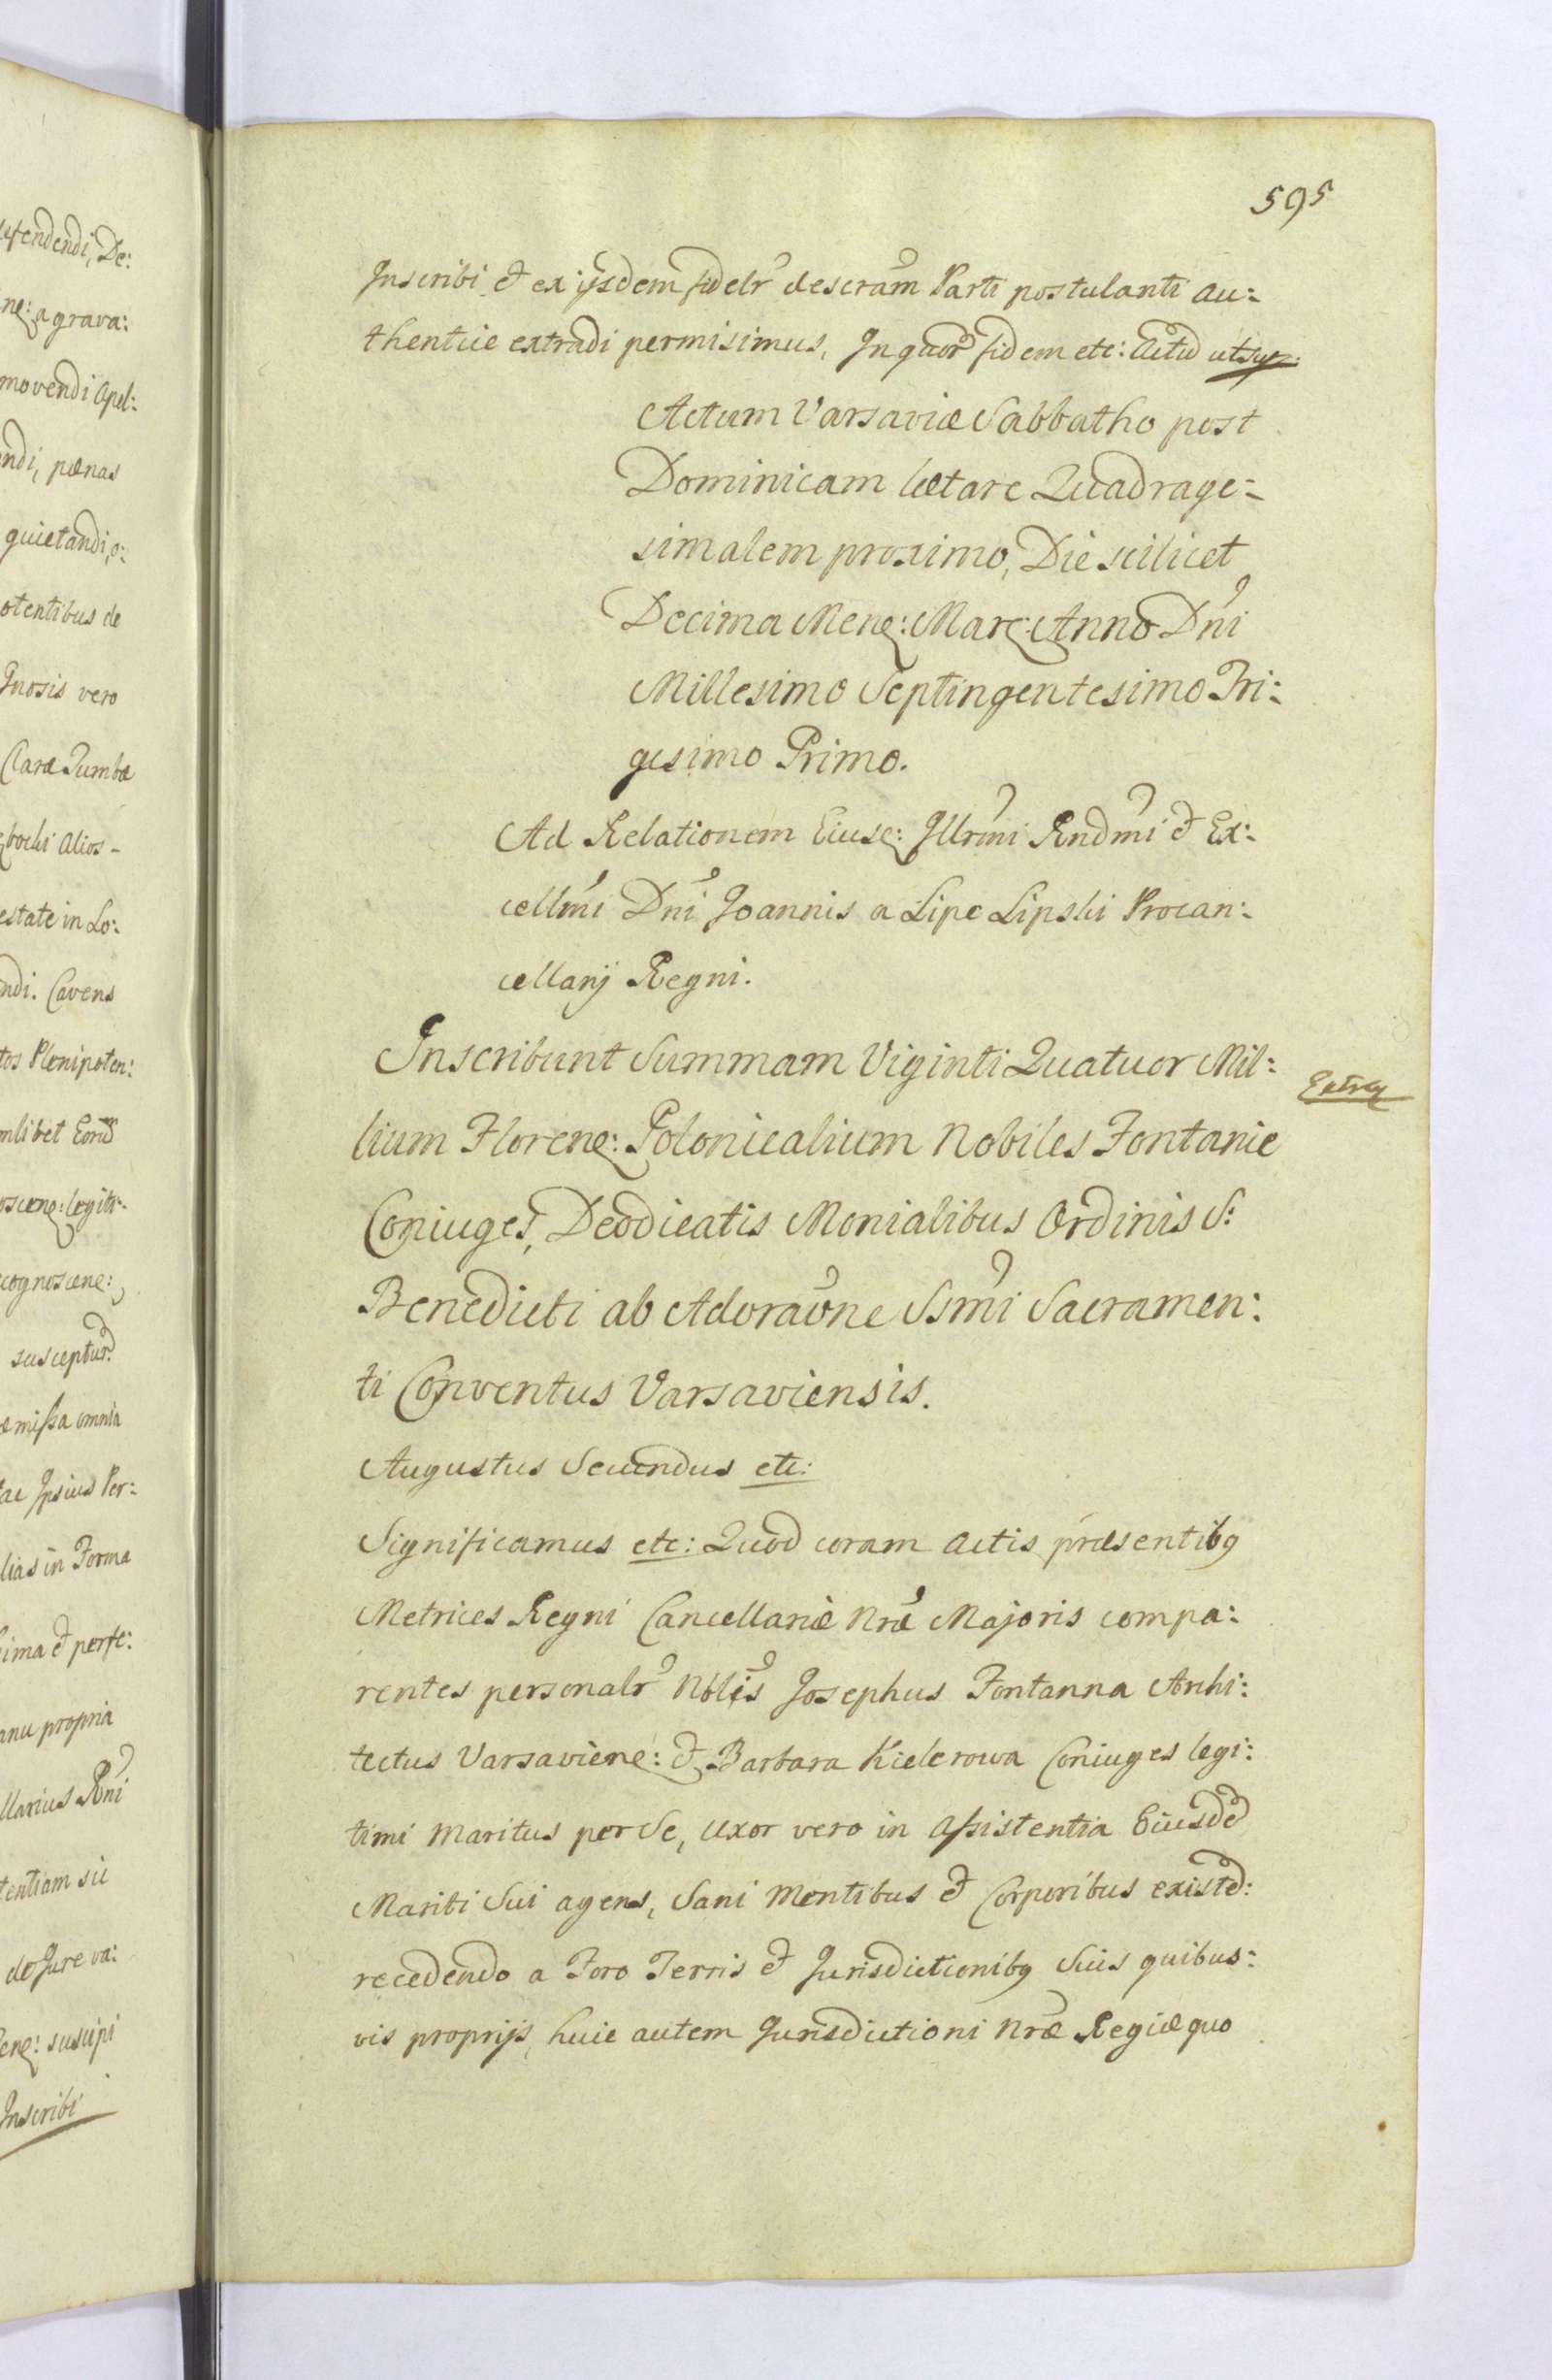 fendendi, De:
ne: agrava:
movendi Apel:
endi, pœnas
quietandi,
otentibus de
Gnosis vero
Claræ Tumbæ
bochi alios-
estate in Lo:
ndi. Cavens
tos Plenipoten:
mlibet Eord
oscene: legiti:
cognoscene:
susceptur
æmissa omnia
ac Ipsius Per:
lias in Forma
ima et perfe:
anu propria
llarius Rni
tentiam sic
de Jure va:
ene: suscipi
Inscribi
595
Inscribi et ex ijsdem fidelr descram Parti postulanti au:
thentice extradi permisimus, In quor fidem etc: Actu ut sup:
Actum Varsaviæ Sabbatho post
Dominicam lætare Quadrage:
simalem proximo, Die scilicet
Decima Mene: Marc: Anno Dni
Millesimo Septingentesimo Tri:
gesimo Primo.
Ad Relationem Eiusc: Illrmi Rndmi et Ex:
cellmi Dni Joannis a Lipe Lipski Procan:
cellarij Regni.
Inscribunt Summam Viginti Quatuor Mil:
lium Florene: Polonicalium Nobiles Fontanie
Coniuges, Deodicatis Monialibus Ordinis S:
Benedicti ab Adoraone Ssmi Sacramen:
ti Conventus Varsaviensis.
Augustus Secundus etc:
Significamus etc: Quod coram Actis præsentibg
Metrices Regni Cancellariæ Nræ Majoris compa:
rentes personalr Nblis Josephus Fontanna Archi:
tectus Varsaviene: et Barbara Kielerowa Coniuges legi:
timi Maritus per Se, Uxor vero in Assistentia Eiusde
Mariti Sui agens, Sani Mentibus et Corporibus existe:
recedendo a Foro Terris et Jurisdictionibg Suis quibus:
vis proprijs, huic autem Jurisdictioni Nræ Regiæ quo